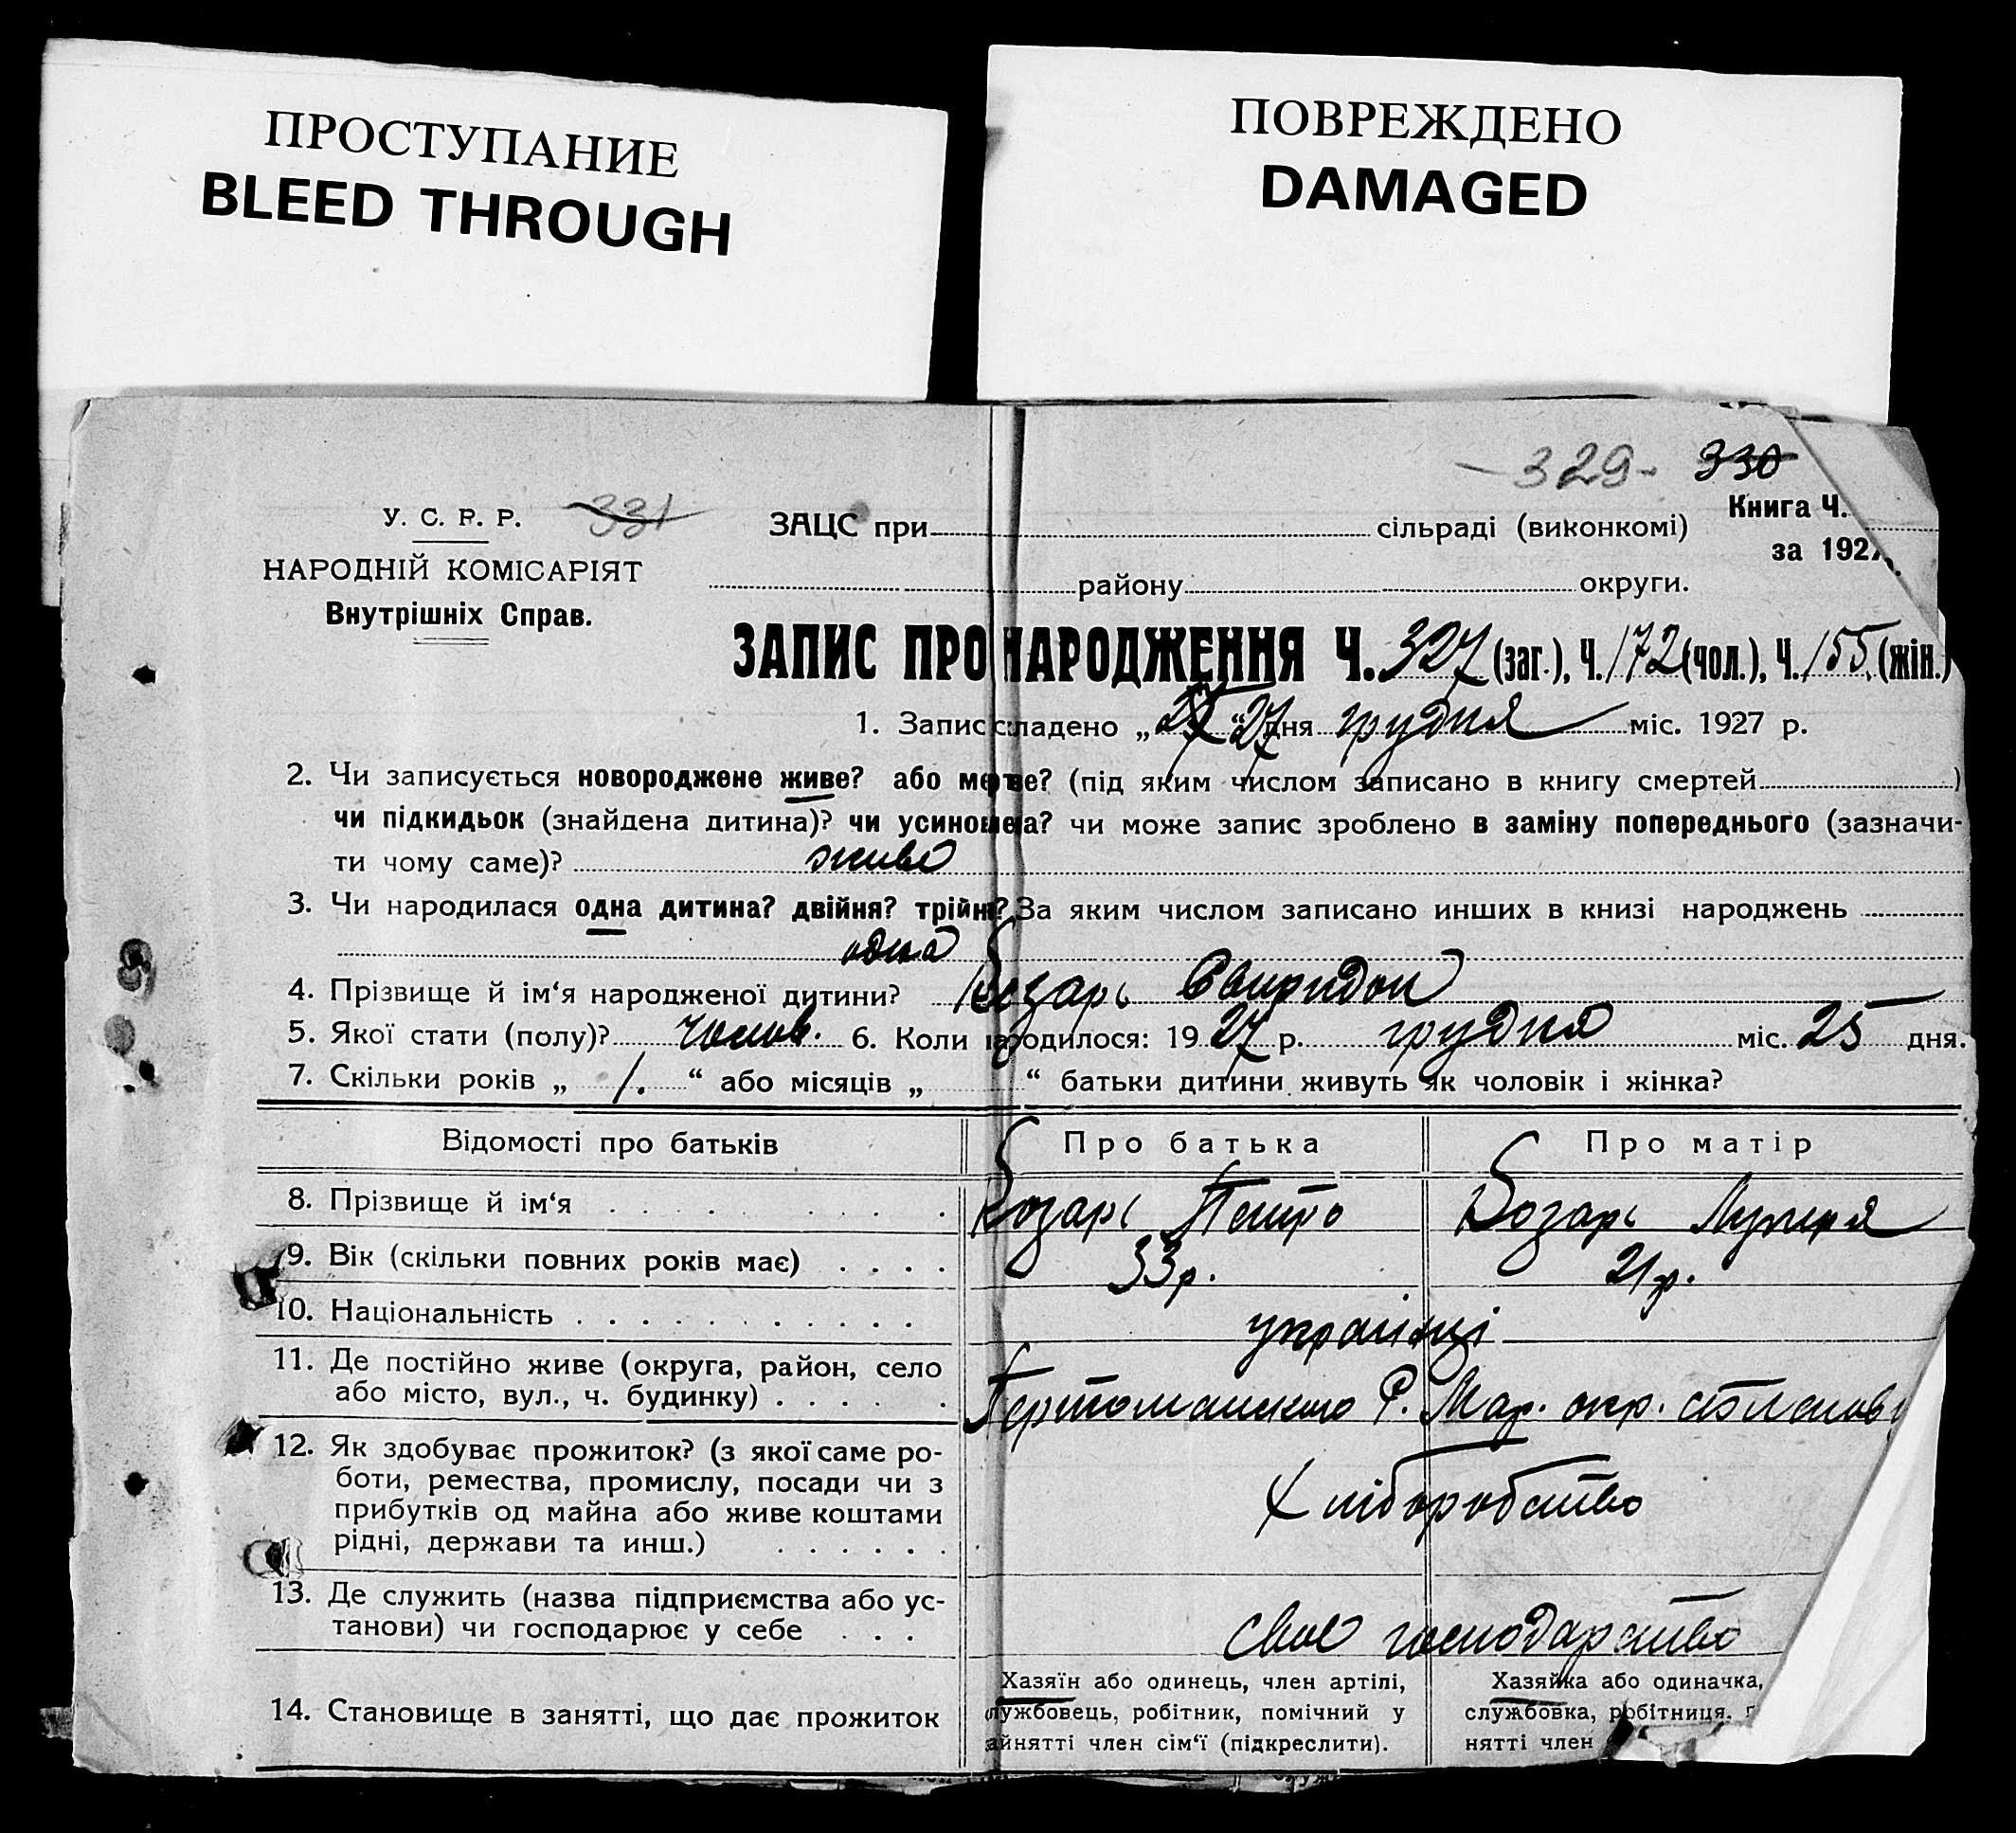 ПРОСТУПАНИЕ
BLEED THROUGH
ПОВРЕЖДЕНО
DAMAGED
- 329 - 330
У. С. Р. Р. 331
НАРОДНІЙ КОМІСАРІЯТ
Внутрішніх Справ.
ЗАЦС при сільраді (виконкомі)
Книга Ч.
за 1927
району округи.
ЗАПИС ПРО НАРОДЖЕННЯ Ч. 327 (заг.), Ч. 172 (чол.), Ч. 155 (жін.)
1. Запис складено „ “ 27 дня грудня міс. 1927 р.
2. Чи записується новороджене живе? або мертве? (під яким числом записано в книгу смертей )
чи підкидьок (знайдена дитина)? чи усиновлена? чи може запис зроблено в заміну попереднього (зазначи-
ти чому саме)? живе
3. Чи народилася одна дитина? двійня? трійня? За яким числом записано инших в книзі народжень
одна
4. Прізвище й ім‘я народженої дитини? Козарь Свиридон
5. Якої стати (полу)? чолов. 6. Коли народилося: 1927 р. грудня міс. 25 дня.
7. Скільки років „ 1. “ або місяців „ “ батьки дитини живуть як чоловік і жінка?
Відомості про батьків Про батька Про матір
8. Прізвище й ім‘я Козарь Петро Козарь Лукеря
9. Вік (скільки повних років має) 33 р. 21 р.
10. Національність українці
11. Де постійно живе (округа, район, село
або місто, вул., ч. будинку) Р. Мар. окр.
12. Як здобуває прожиток? (з якої саме ро-
боти, ремества, промислу, посади чи з
прибутків од майна або живе коштами
рідні, держави та инш.) Хліборобство
13. Де служить (назва підприємства або ус-
танови) чи господарює у себе своє господарство
14. Становище в занятті, що дає прожиток
Хазяїн або одинець, член артілі,
службовець, робітник, помічний у
зайнятті член сім‘ї (підкреслити).
Хазяйка або одиначка,
службовка, робітниця, п
нятті член